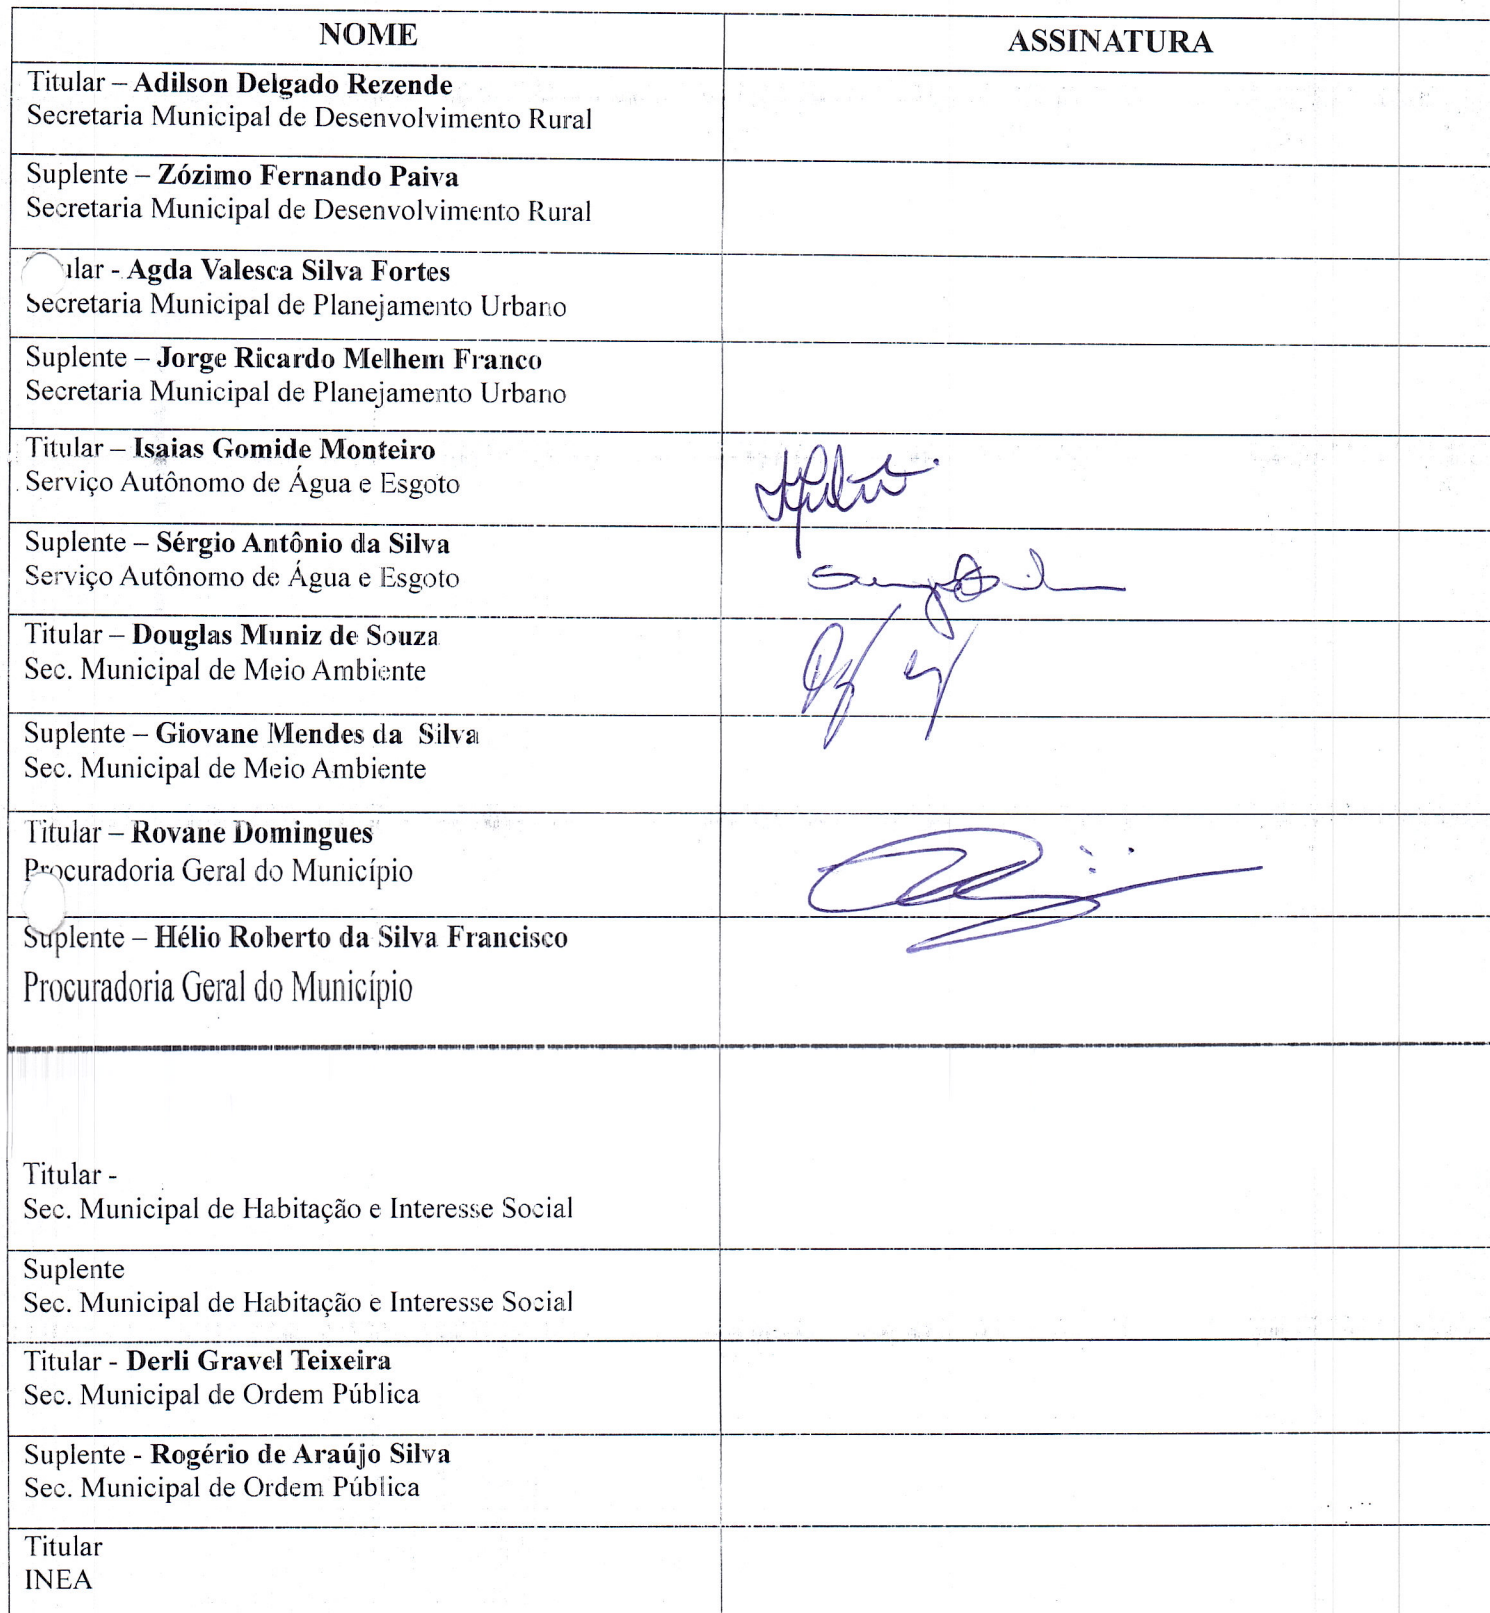 NOME
ASSINATURA
Titular – Adilson Delgado Rezende
Secretaria Municipal de Desenvolvimento Rural
Suplente – Zózimo Fernando Paiva
Secretaria Municipal de Desenvolvimento Rural
ular - Agda Valesca Silva Fortes
Secretaria Municipal de Planejamento Urbano
Suplente – Jorge Ricardo Melhem Franco
Secretaria Municipal de Planejamento Urbano
Titular – Isaias Gomide Monteiro
Serviço Autônomo de Água e Esgoto
Suplente – Sérgio Antônio da Silva
Serviço Autônomo de Água e Esgoto
Titular – Douglas Muniz de Souza
Sec. Municipal de Meio Ambiente
Suplente – Giovane Mendes da Silva
Sec. Municipal de Meio Ambiente
Titular – Rovane Domingues
Procuradoria Geral do Município
Suplente – Hélio Roberto da Silva Francisco
Procuradoria Geral do Município
Titular -
Sec. Municipal de Habitação e Interesse Social
Suplente
Sec. Municipal de Habitação e Interesse Social
Titular - Derli Gravel Teixeira
Sec. Municipal de Ordem Pública
Suplente - Rogério de Araújo Silva
Sec. Municipal de Ordem Pública
Titular
INEA